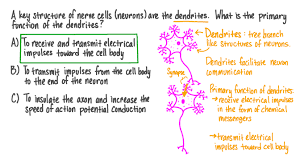 A key structure of nerve cells (neurons) are the dendrites. What is the primary
function of the dendrites?
A) To receive and transmit electrical
impulses toward the cell body
B) To transmit impulses from the cell body
to the end of the neuron
C) To insulate the axon and increase the
speed of action potential conduction
Synapse
Dendrites: tree branch
like structures of neurons.
Dendrites facilitate neuron
communication
Primary function of dendrites
→ receive electrical impulses
in the form of chemical
messengers
→ transmit electrical
impulses toward cell body